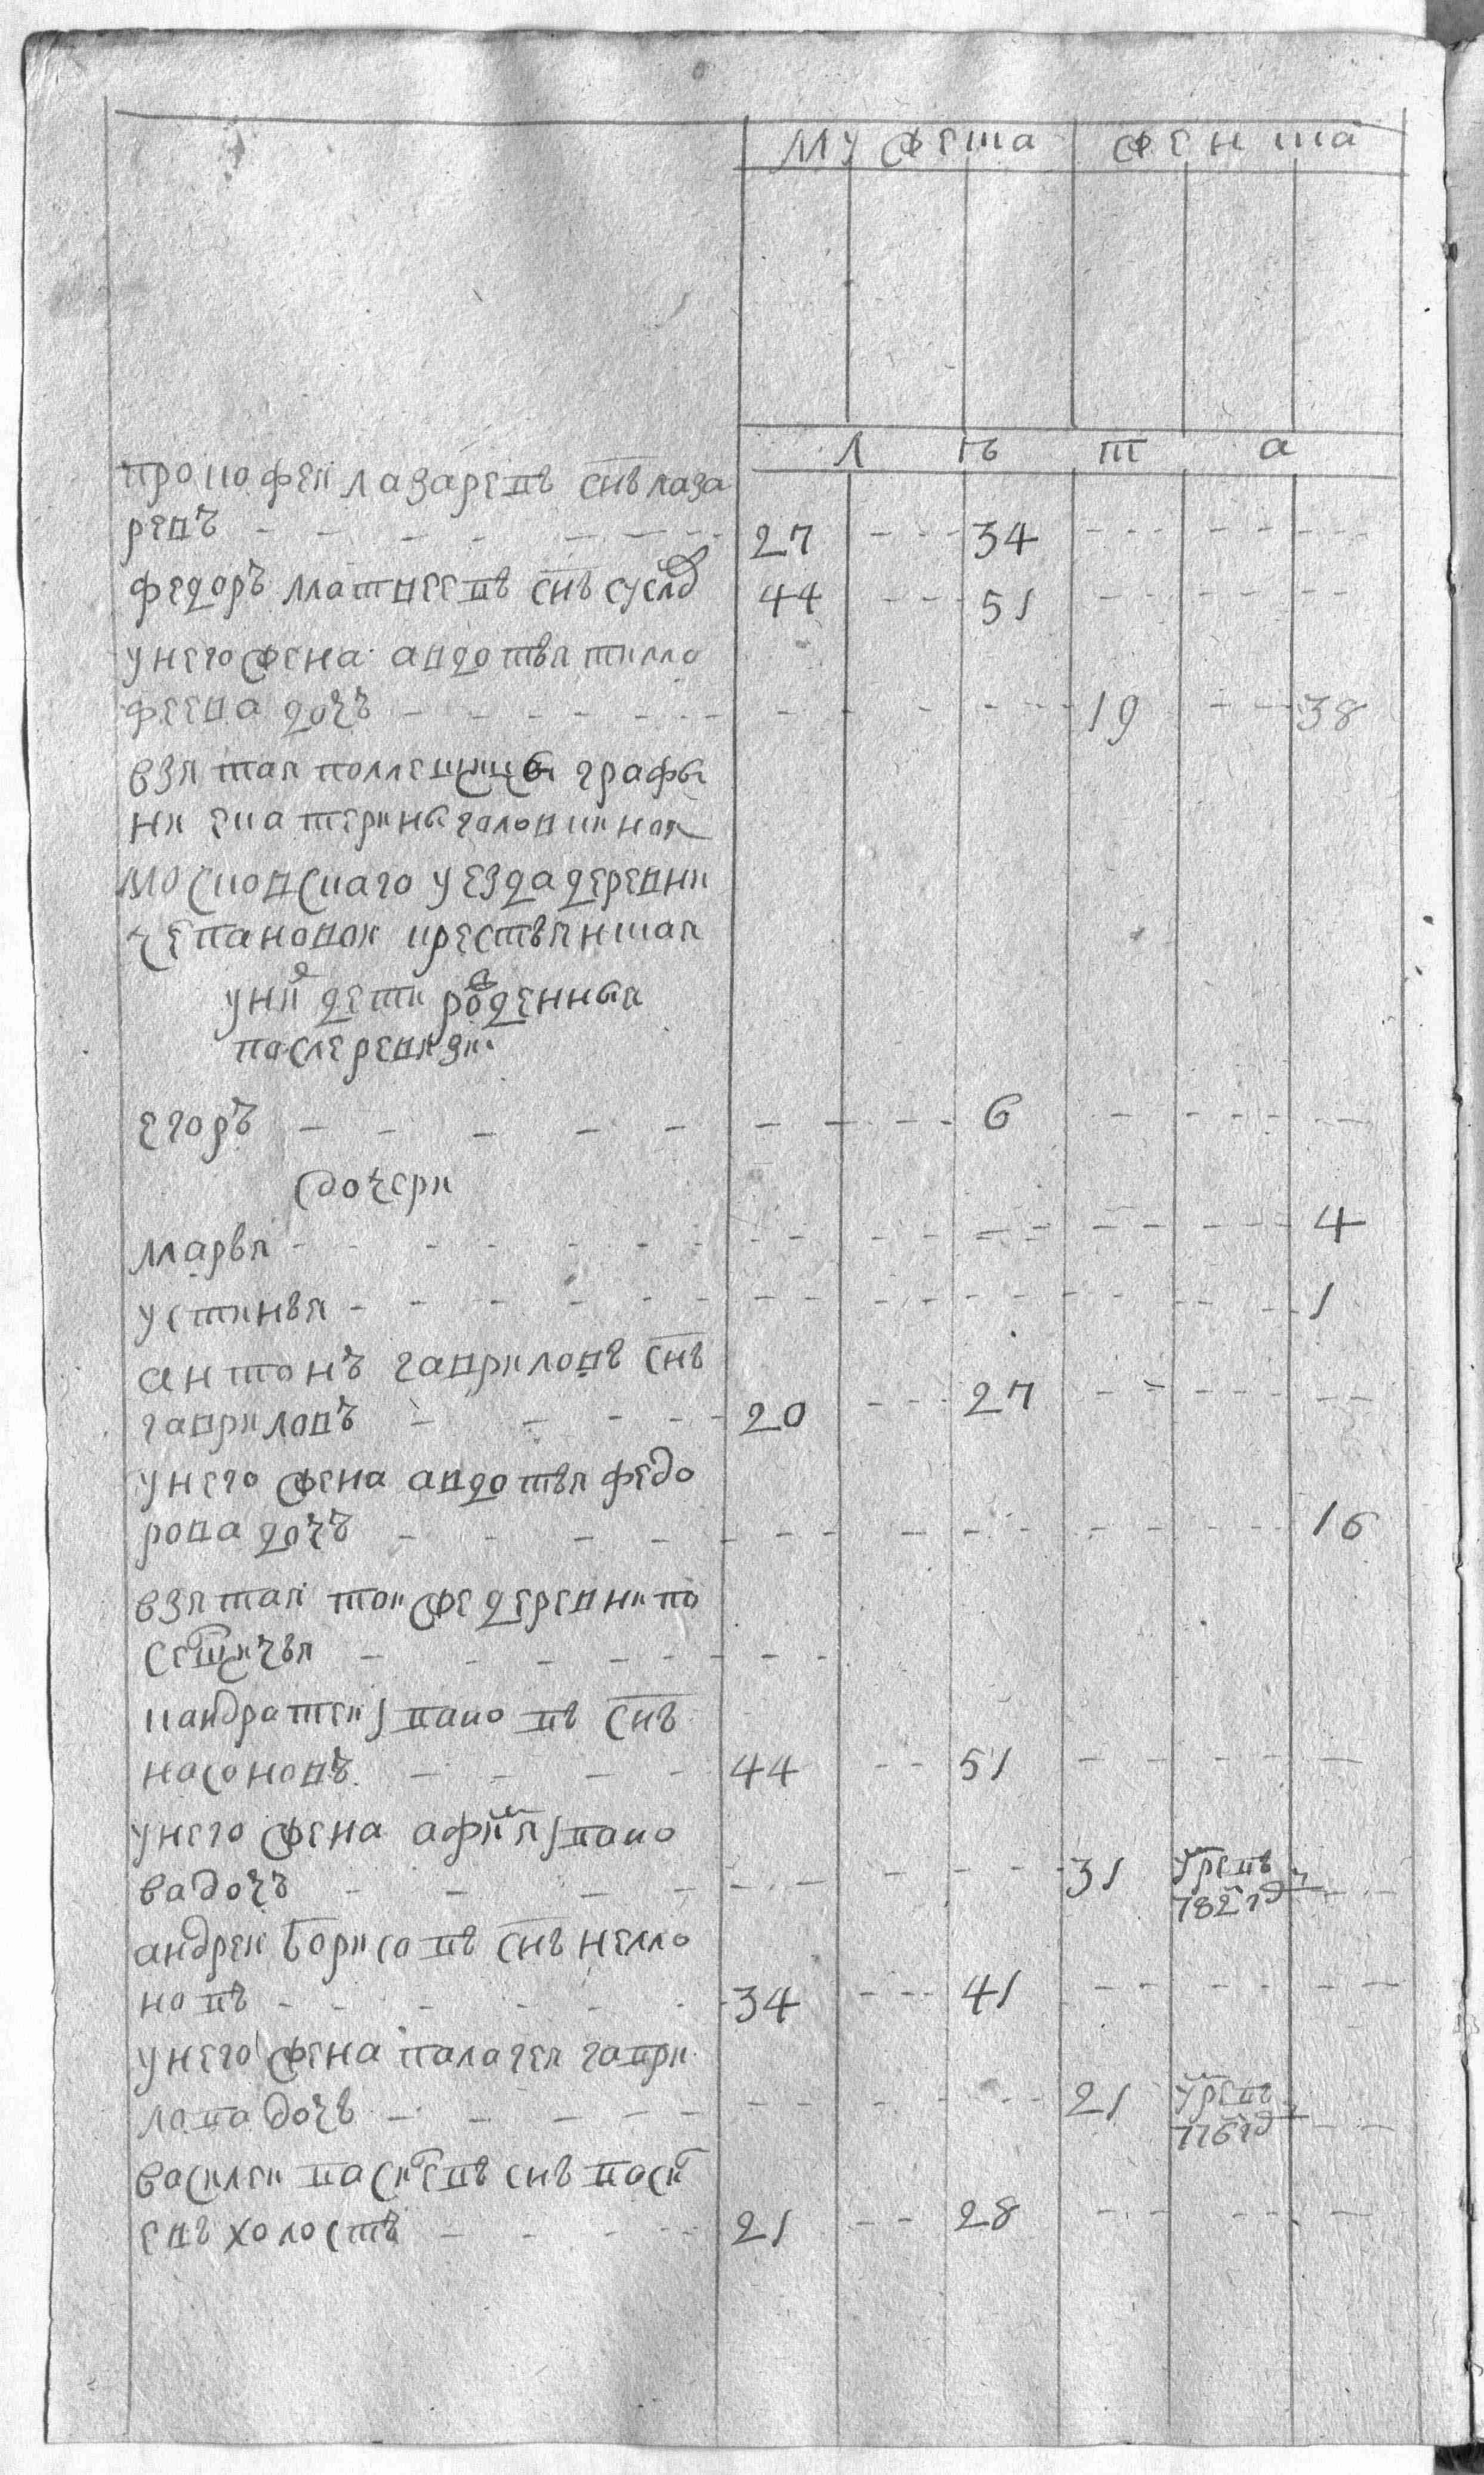 мужеска женска
лѣта
прокофеи лазаревъ снъ лаза
ревъ - - - 27 - - - 34 - - -
федоръ матвеевъ снъ 44 - - - 51 - - -
у него жена авдотья тимо
феева дочь - - - 19 - - - 38
взятая помещицы графы
ни екатерины галовкинои
московскаго уезда деревни
степановои крестьянская
у них дети рожденныя
после ревизии
егоръ - - - 6 - - -
дочери
марья - - - 4
устинья - - - 1
антонъ гавриловъ снъ
гавриловъ - - - 20 - - - 27 - - -
у него жена авдотья федо
рова дочь - - - 16
взятая тои же деревни по
- - -
кандратеи якововъ снъ
насоновъ - - - 44 - - 51 - - -
у него жена афимья яково
ва дочь - - - 31 умре въ
782 гд - -
андреи борисовъ снъ немо
новъ - - - 34 - - - 41 - - -
у него жена палагея гаври
лова дочь - - - 21 умре въ
776 гд - -
василеи васильевъ снъ васил
евъ холостъ - - - 21 - - 28 - - -